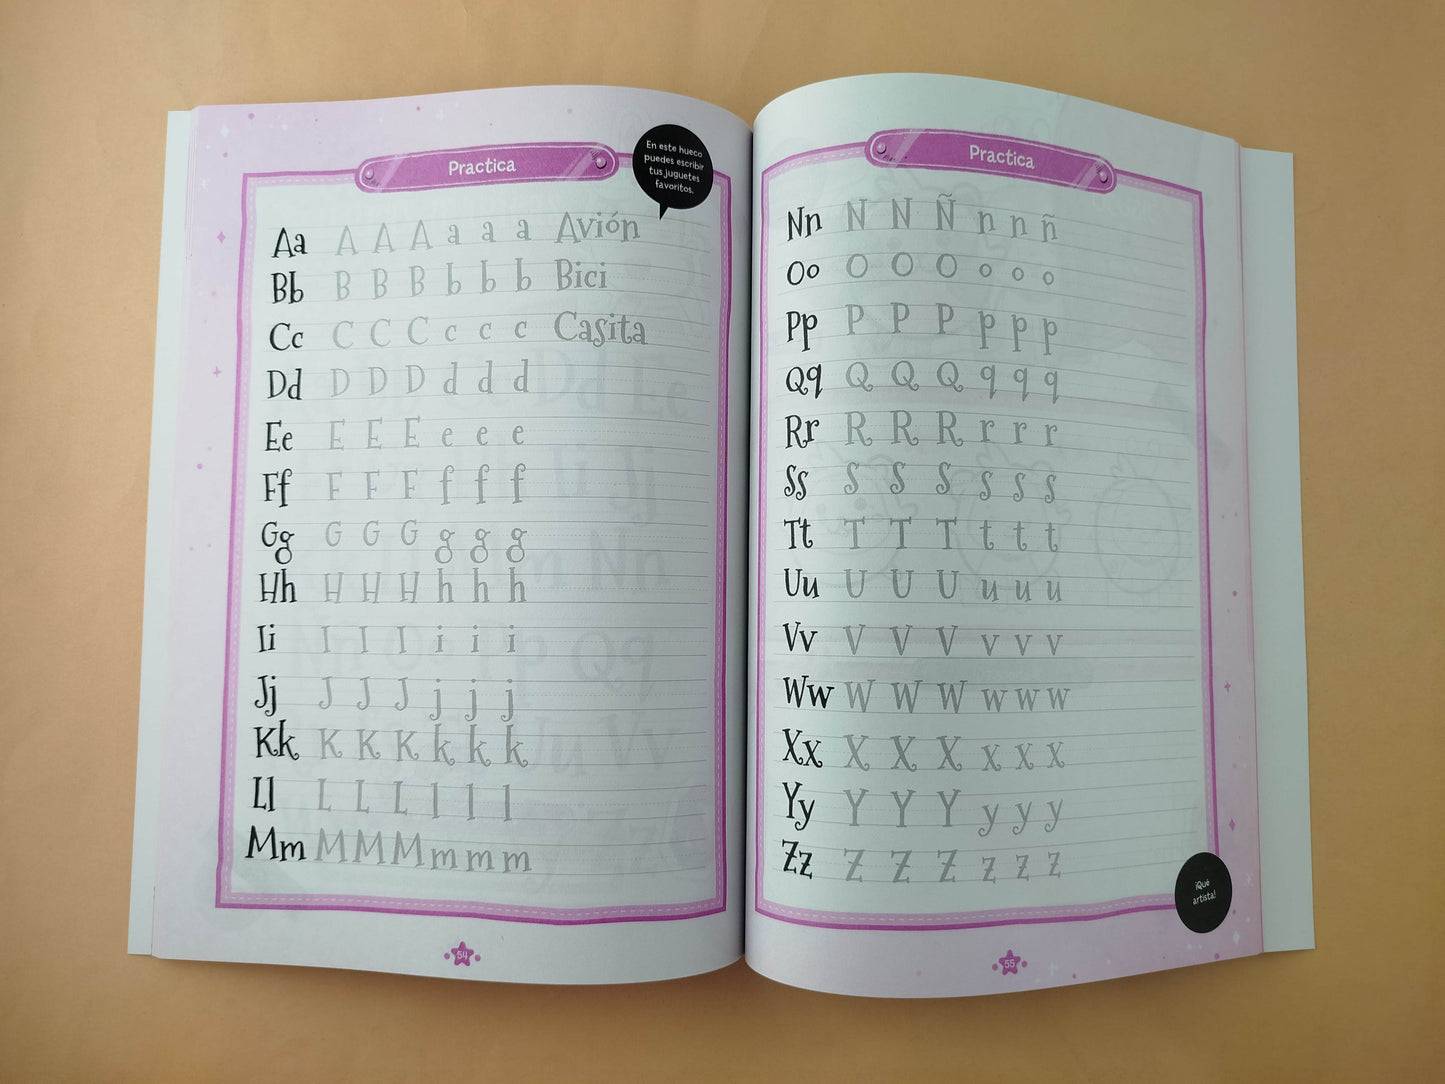 Practica
En este hueco
puedes escribir
tus juguetes
favoritos.
Aa A A A a a a Avión
Bb B B B b b b Bici
Cc C C C c c c Casita
Dd D D D d d d
Ee E E E e e e
Ff F F F f f f
Gg G G G g g g
Hh H H H h h h
Ii I I I i i i
Jj J J J j j j
Kk K K K k k k
Ll L L L l l l
Mm M M M m m m
54
Practica
Nn N N Ñ n n ñ
Oo O O O o o o
Pp P P P p p p
Qq Q Q Q q q q
Rr R R R r r r
Ss S S S s s s
Tt T T T t t t
Uu U U U u u u
Vv V V V v v v
Ww W W W w w w
Xx X X X x x x
Yy Y Y Y y y y
Zz Z Z Z z z z
¡Qué
artista!
55